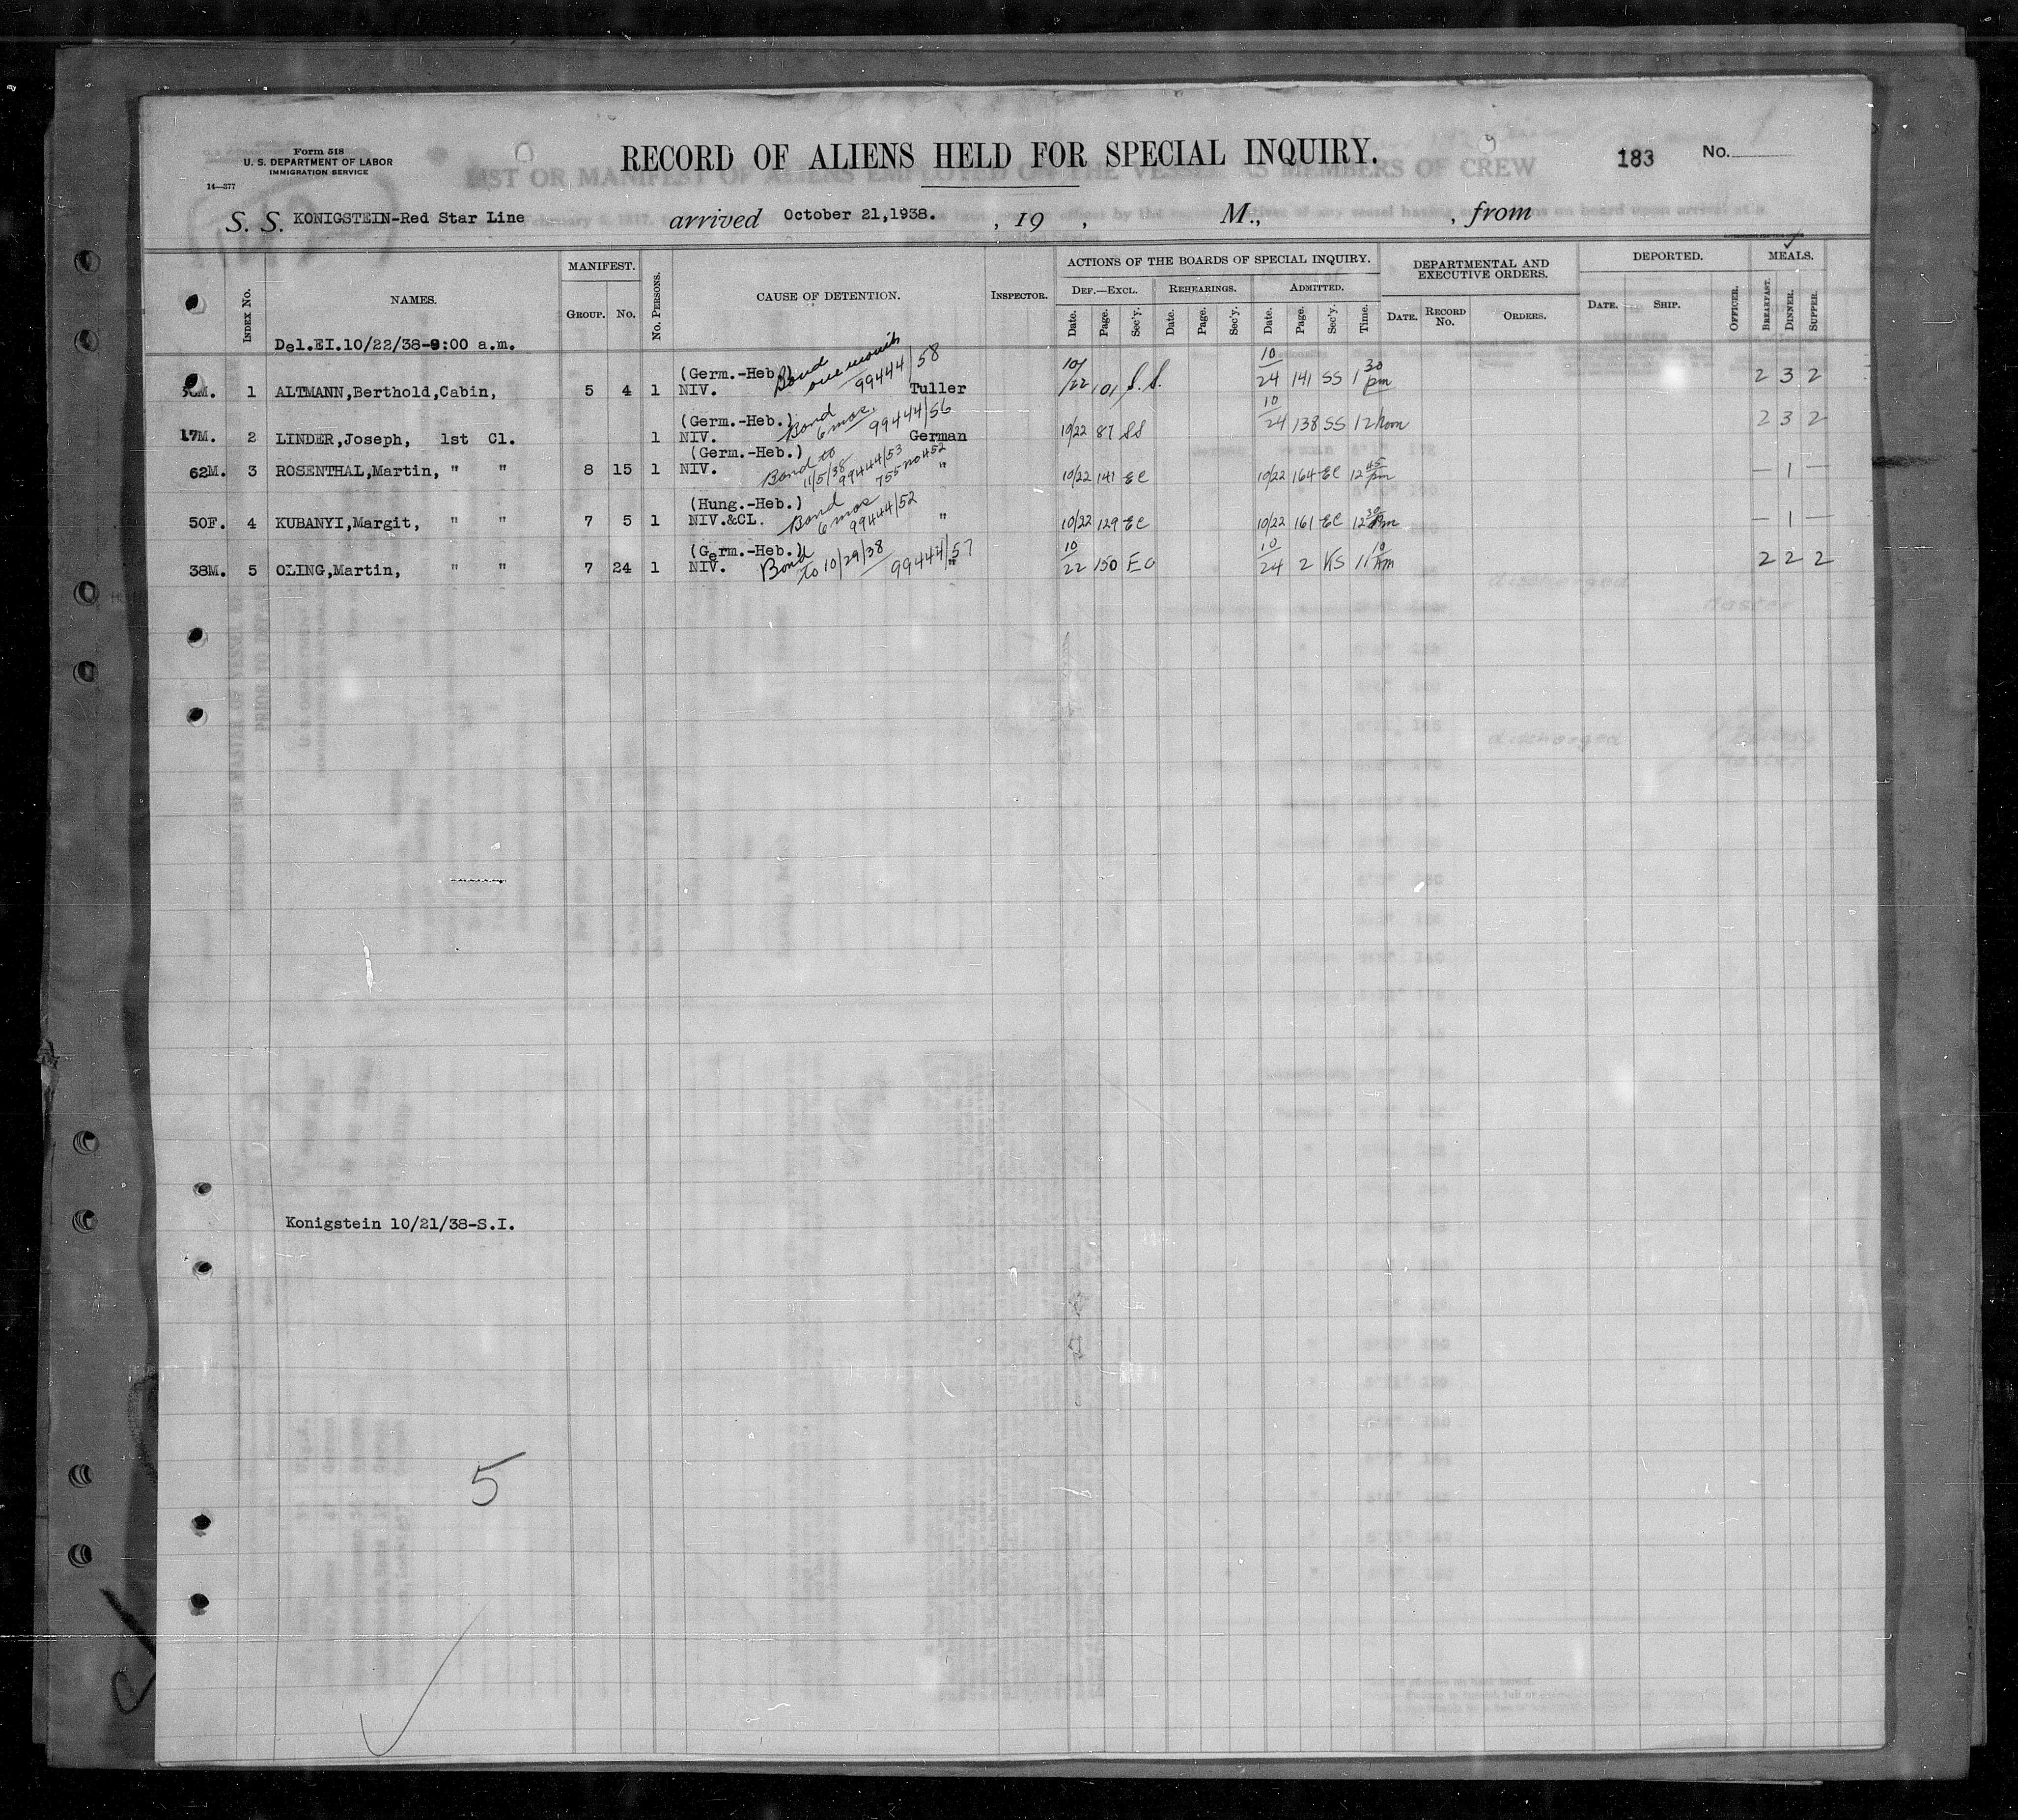 Form 518
U. S. DEPARTMENT OF LABOR
IMMIGRATION SERVICE
14—377
RECORD OF ALIENS HELD FOR SPECIAL INQUIRY.
183 No.
S. S. KONIGSTEIN-Red Star Line arrived October 21,1938. , 19 , M., , from
INDEX No. NAMES. MANIFEST. GROUP. No. No. PERSONS. CAUSE OF DETENTION. INSPECTOR. ACTIONS OF THE BOARDS OF SPECIAL INQUIRY. DEF.—EXCL. Date. Page. Sec'y. REHEARINGS. Date. Page. Sec'y. ADMITTED. Date. Page. Sec'y. Time. DEPARTMENTAL AND EXECUTIVE ORDERS. DATE. RECORD No. ORDERS. DEPORTED. DATE. SHIP. OFFICER. MEALS. BREAKFAST. DINNER. SUPPER.
Del.EI.10/22/38-9:00 a.m.
(Germ.-Heb.) Bond one month 99444/58
M. 1 ALTMANN,Berthold,Cabin, 5 4 1 NIV. Tuller 10/22 101 S.S. 10/24 141 SS 1 30 pm 2 3 2
(Germ.-Heb.) Bond 6 mos. 99444/56
17M. 2 LINDER,Joseph, 1st Cl. 1 NIV. German 10/22 87 SS 10/24 138 SS 12 Noon 2 3 2
(Germ.-Heb.) Bond to 11/5/38 99444/53
62M. 3 ROSENTHAL,Martin, " " 8 15 1 NIV. " 10/22 141 EC 10/22 164 EC 12 45 pm — 1 —
(Hung.-Heb.) Bond 6 mos 99444/52
50F. 4 KUBANYI,Margit, " " 7 5 1 NIV.&CL. " 10/22 129 EC 10/22 161 EC 12 30 pm — 1 —
(Germ.-Heb.) Bond to 10/29/38 99444/57
38M. 5 OLING,Martin, " " 7 24 1 NIV. " 10/22 150 EC 10/24 2 KS 11 10 Am 2 2 2
Konigstein 10/21/38-S.I.
5